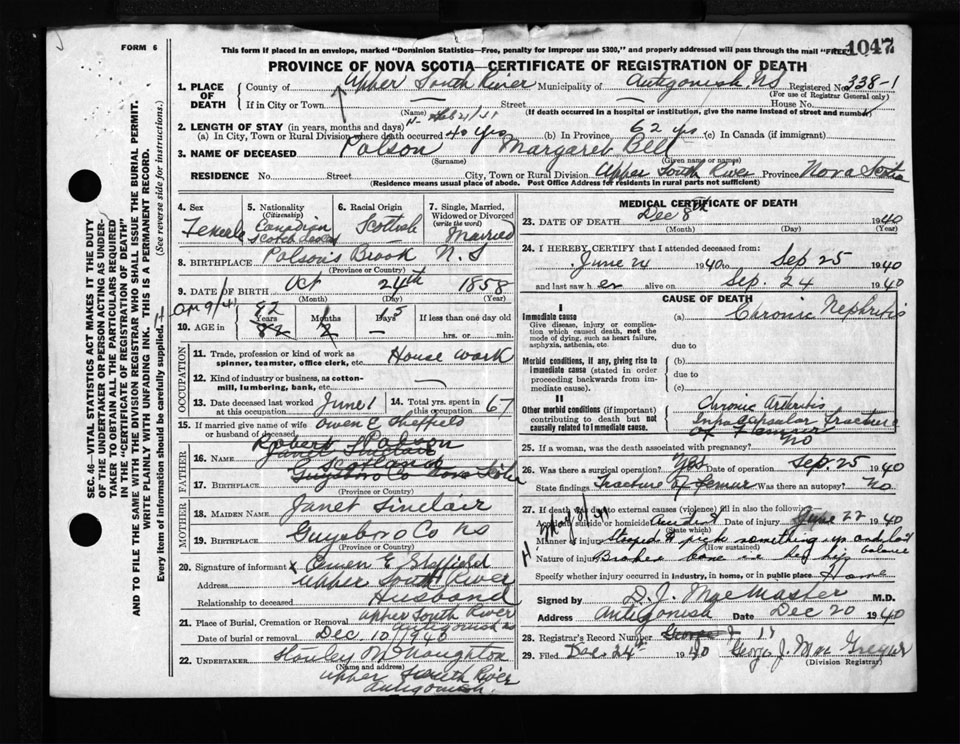 FORM 6
This form if placed in an envelope, marked "Dominion Statistics—Free, penalty for improper use $300," and properly addressed will pass through the mail "FREE"
1047
PROVINCE OF NOVA SCOTIA—CERTIFICATE OF REGISTRATION OF DEATH
1. PLACE OF DEATH County of Upper South River Municipality of Antigonish, NS Registered No. 338-1
(For use of Registrar General only)
If in City or Town Street House No.
(Name) (If death occurred in a hospital or institution, give the name instead of street and number)
2. LENGTH OF STAY (in years, months and days)
(a) In City, Town or Rural Division where death occurred 40 yrs (b) In Province, 62 yrs (c) In Canada (if immigrant)
3. NAME OF DECEASED Polson Margaret Bell
(Surname) (Given name or names)
RESIDENCE No. Street City, Town or Rural Division Upper South River Province Nova Scotia
(Residence means usual place of abode. Post Office Address for residents in rural parts not sufficient)
4. Sex Female
5. Nationality (Citizenship) Canadian
6. Racial Origin Scottish
7. Single, Married, Widowed or Divorced (write the word) Married
8. BIRTHPLACE Polson's Brook N.S
(Province or Country)
9. DATE OF BIRTH Oct 24th 1858
(Month) (Day) (Year)
10. AGE in 82 Years 1 Months 15 Days If less than one day old
hrs. or min.
OCCUPATION
11. Trade, profession or kind of work as spinner, teamster, office clerk, etc. House work
12. Kind of industry or business, as cotton-mill, lumbering, bank, etc. —
13. Date deceased last worked at this occupation June 1 14. Total yrs. spent in this occupation 67
15. If married give name of wife or husband of deceased Owen E Sheffield
FATHER
16. Name
17. Birthplace
(Province or Country)
MOTHER
18. Maiden Name Janet Sinclair
19. Birthplace Guysboro Co NS
(Province or Country)
20. Signature of informant x Owen E Sheffield
Address Upper South River
Relationship to deceased Husband
21. Place of Burial, Cremation or Removal Upper South River
Antigonish
Date of burial or removal Dec. 10, 1940
22. UNDERTAKER McNaughton
(Name and address)
Upper South River
Antigonish.
MEDICAL CERTIFICATE OF DEATH
23. DATE OF DEATH Dec 8th 1940
(Month) (Day) (Year)
24. I HEREBY CERTIFY that I attended deceased from:
June 24 1940 to Sep 25 1940
and last saw her alive on Sep. 24 1940
CAUSE OF DEATH
I
Immediate cause (a) Chronic Nephritis
Give disease, injury or complication which caused death, not the mode of dying, such as heart failure, asphyxia, asthenia, etc.
due to
Morbid conditions, if any, giving rise to immediate cause (stated in order proceeding backwards from immediate cause).
(b)
due to
(c)
II
Other morbid conditions (if important) contributing to death but not causally related to immediate cause.
Chronic Arthritis
Intracapsular Fracture
of Femur
25. If a woman, was the death associated with pregnancy? No
26. Was there a surgical operation? Yes Date of operation Sep. 25 1940
State findings Fracture of femur Was there an autopsy? No
27. If death was due to external causes (violence) fill in also the following
Accident, suicide or homicide Accident Date of injury June 22 1940
(State which)
Manner of injury Stooped to pick something up and lost balance
(How sustained)
Nature of injury Broken bone in her hip
Specify whether injury occurred in industry, in home, or in public place Home
Signed by D. J. MacMaster M.D.
Address Antigonish Date Dec 20 1940
28. Registrar's Record Number
29. Filed Dec. 24th 1940 George J. Mac
(Division Registrar)
SEC. 46—VITAL STATISTICS ACT MAKES IT THE DUTY OF THE UNDERTAKER OR PERSON ACTING AS UNDERTAKER TO OBTAIN ALL THE PARTICULARS REQUIRED IN THE "CERTIFICATE OF REGISTRATION OF DEATH" AND TO FILE THE SAME WITH THE DIVISION REGISTRAR WHO SHALL ISSUE THE BURIAL PERMIT.
WRITE PLAINLY WITH UNFADING INK. THIS IS A PERMANENT RECORD.
Every item of information should be carefully supplied. (See reverse side for instructions.)